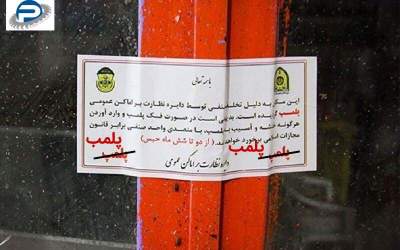 باسمه تعالی
این مکان به دلیل تخلف صنفی توسط دایره نظارت بر اماکن عمومی
پلمب گردیده است. بدیهی است در صورت فک پلمب و وارد آوردن
هرگونه خدشه و آسیب به پلمب، با متصدی واحد صنفی برابر قانون
مجازات اسلامی برخورد خواهد شد. (از دو تا شش ماه حبس)
پلمب پلمب
پلمب پلمب
دایره نظارت بر اماکن عمومی